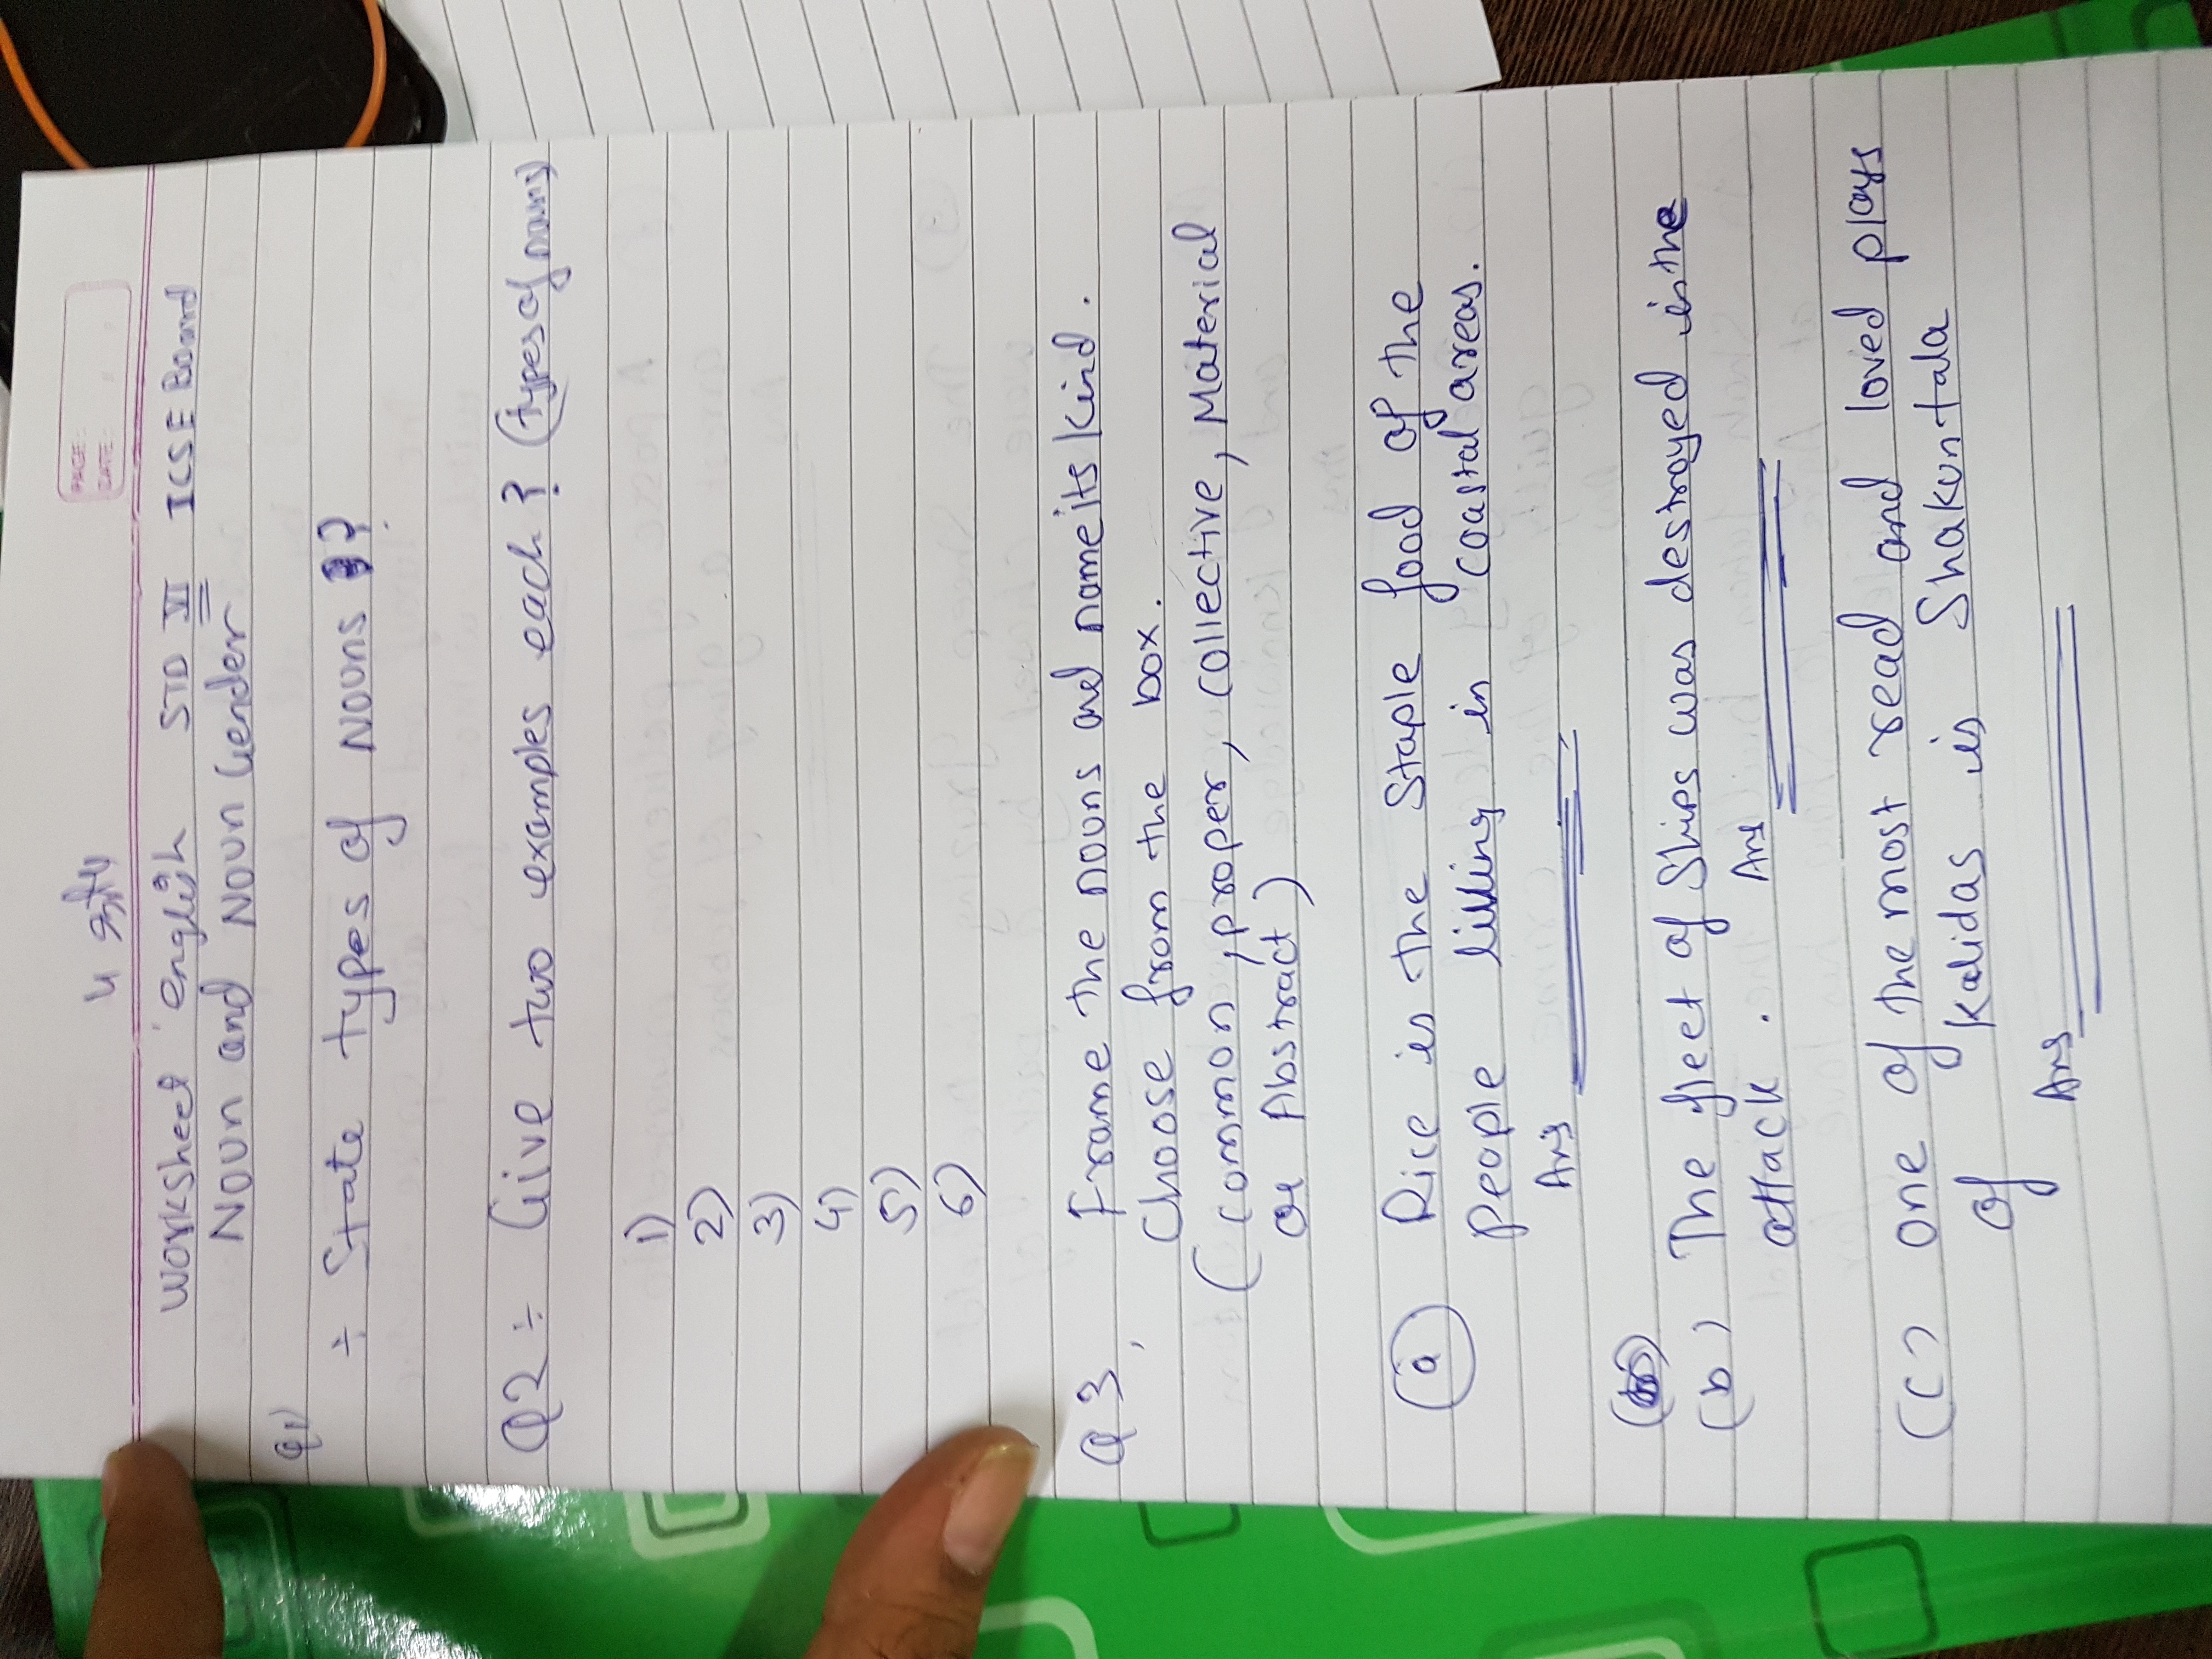 PAGE:
DATE:
Worksheet English STD VI ICSE Board
Noun and Noun Gender
Q1)
÷ State types of Nouns ?
Q2 ÷ Give two examples each? (types of nouns)
1)
2)
3)
4)
5)
6)
Q3, Frame the nouns and name its kind.
Choose from the box.
(common, proper, collective, Material
or Abstract)
a Rice is the staple food of the
people living in coastal areas.
Ans
(b) The fleet of Ships was destroyed in the
attack. Ans
(c) one of the most read and loved plays
of Kalidas is Shakuntala
Ans